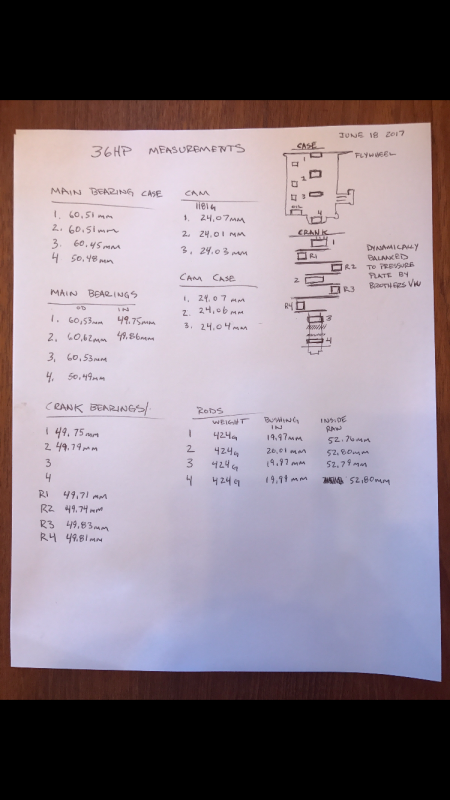 JUNE 18 2017
36HP MEASUREMENTS
CASE
FLYWHEEL
1
2
3
OIL
4
CRANK
1
R1
R2
2
R3
R4
3
4
DYNAMICALLY
BALANCED
TO PRESSURE
PLATE BY
BROTHERS VW
MAIN BEARING CASE
1. 60,51 mm
2. 60,51 mm
3. 60,45 mm
4 50,48 mm
CAM
1. 24,07mm
2. 24,01 mm
3. 24,03 mm
CAM CASE
1. 24,07 mm
2. 24,06 mm
3. 24,04 mm
MAIN BEARINGS
OD IN
1. 60,53mm 49,75mm
2. 60,62mm 49,86mm
3. 60,53mm
4. 50,49mm
CRANK BEARINGS/
1 49,75 mm
2 49,79 mm
3
4
R1 49,71 mm
R2 49,74 mm
R3 49,83 mm
R4 49,81 mm
RODS
WEIGHT BUSHING IN INSIDE RAW
1 424g 19,97mm 52.76mm
2 424g 20,01 mm 52,80mm
3 424g 19,97mm 52,79mm
4 424g 19,99 mm 52,80mm